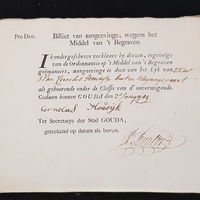 Pro Deo.
Billiet van aangeevinge, wegens het
Middel van 't Begraven.
Ik ondergeschreve verklaare by deezen, ingevolge
van de Ordonnantie op 't Middel van 't Begraven
geëmaneert, aangeevinge te doen van het Lyk van
als gehoorende onder de Classe van d' onvermogende.
Gedaan binnen GOUDA den 2
Cornelis Houdijk
Ter Secretarye der Stad GOUDA,
geteekend op datum als boven.